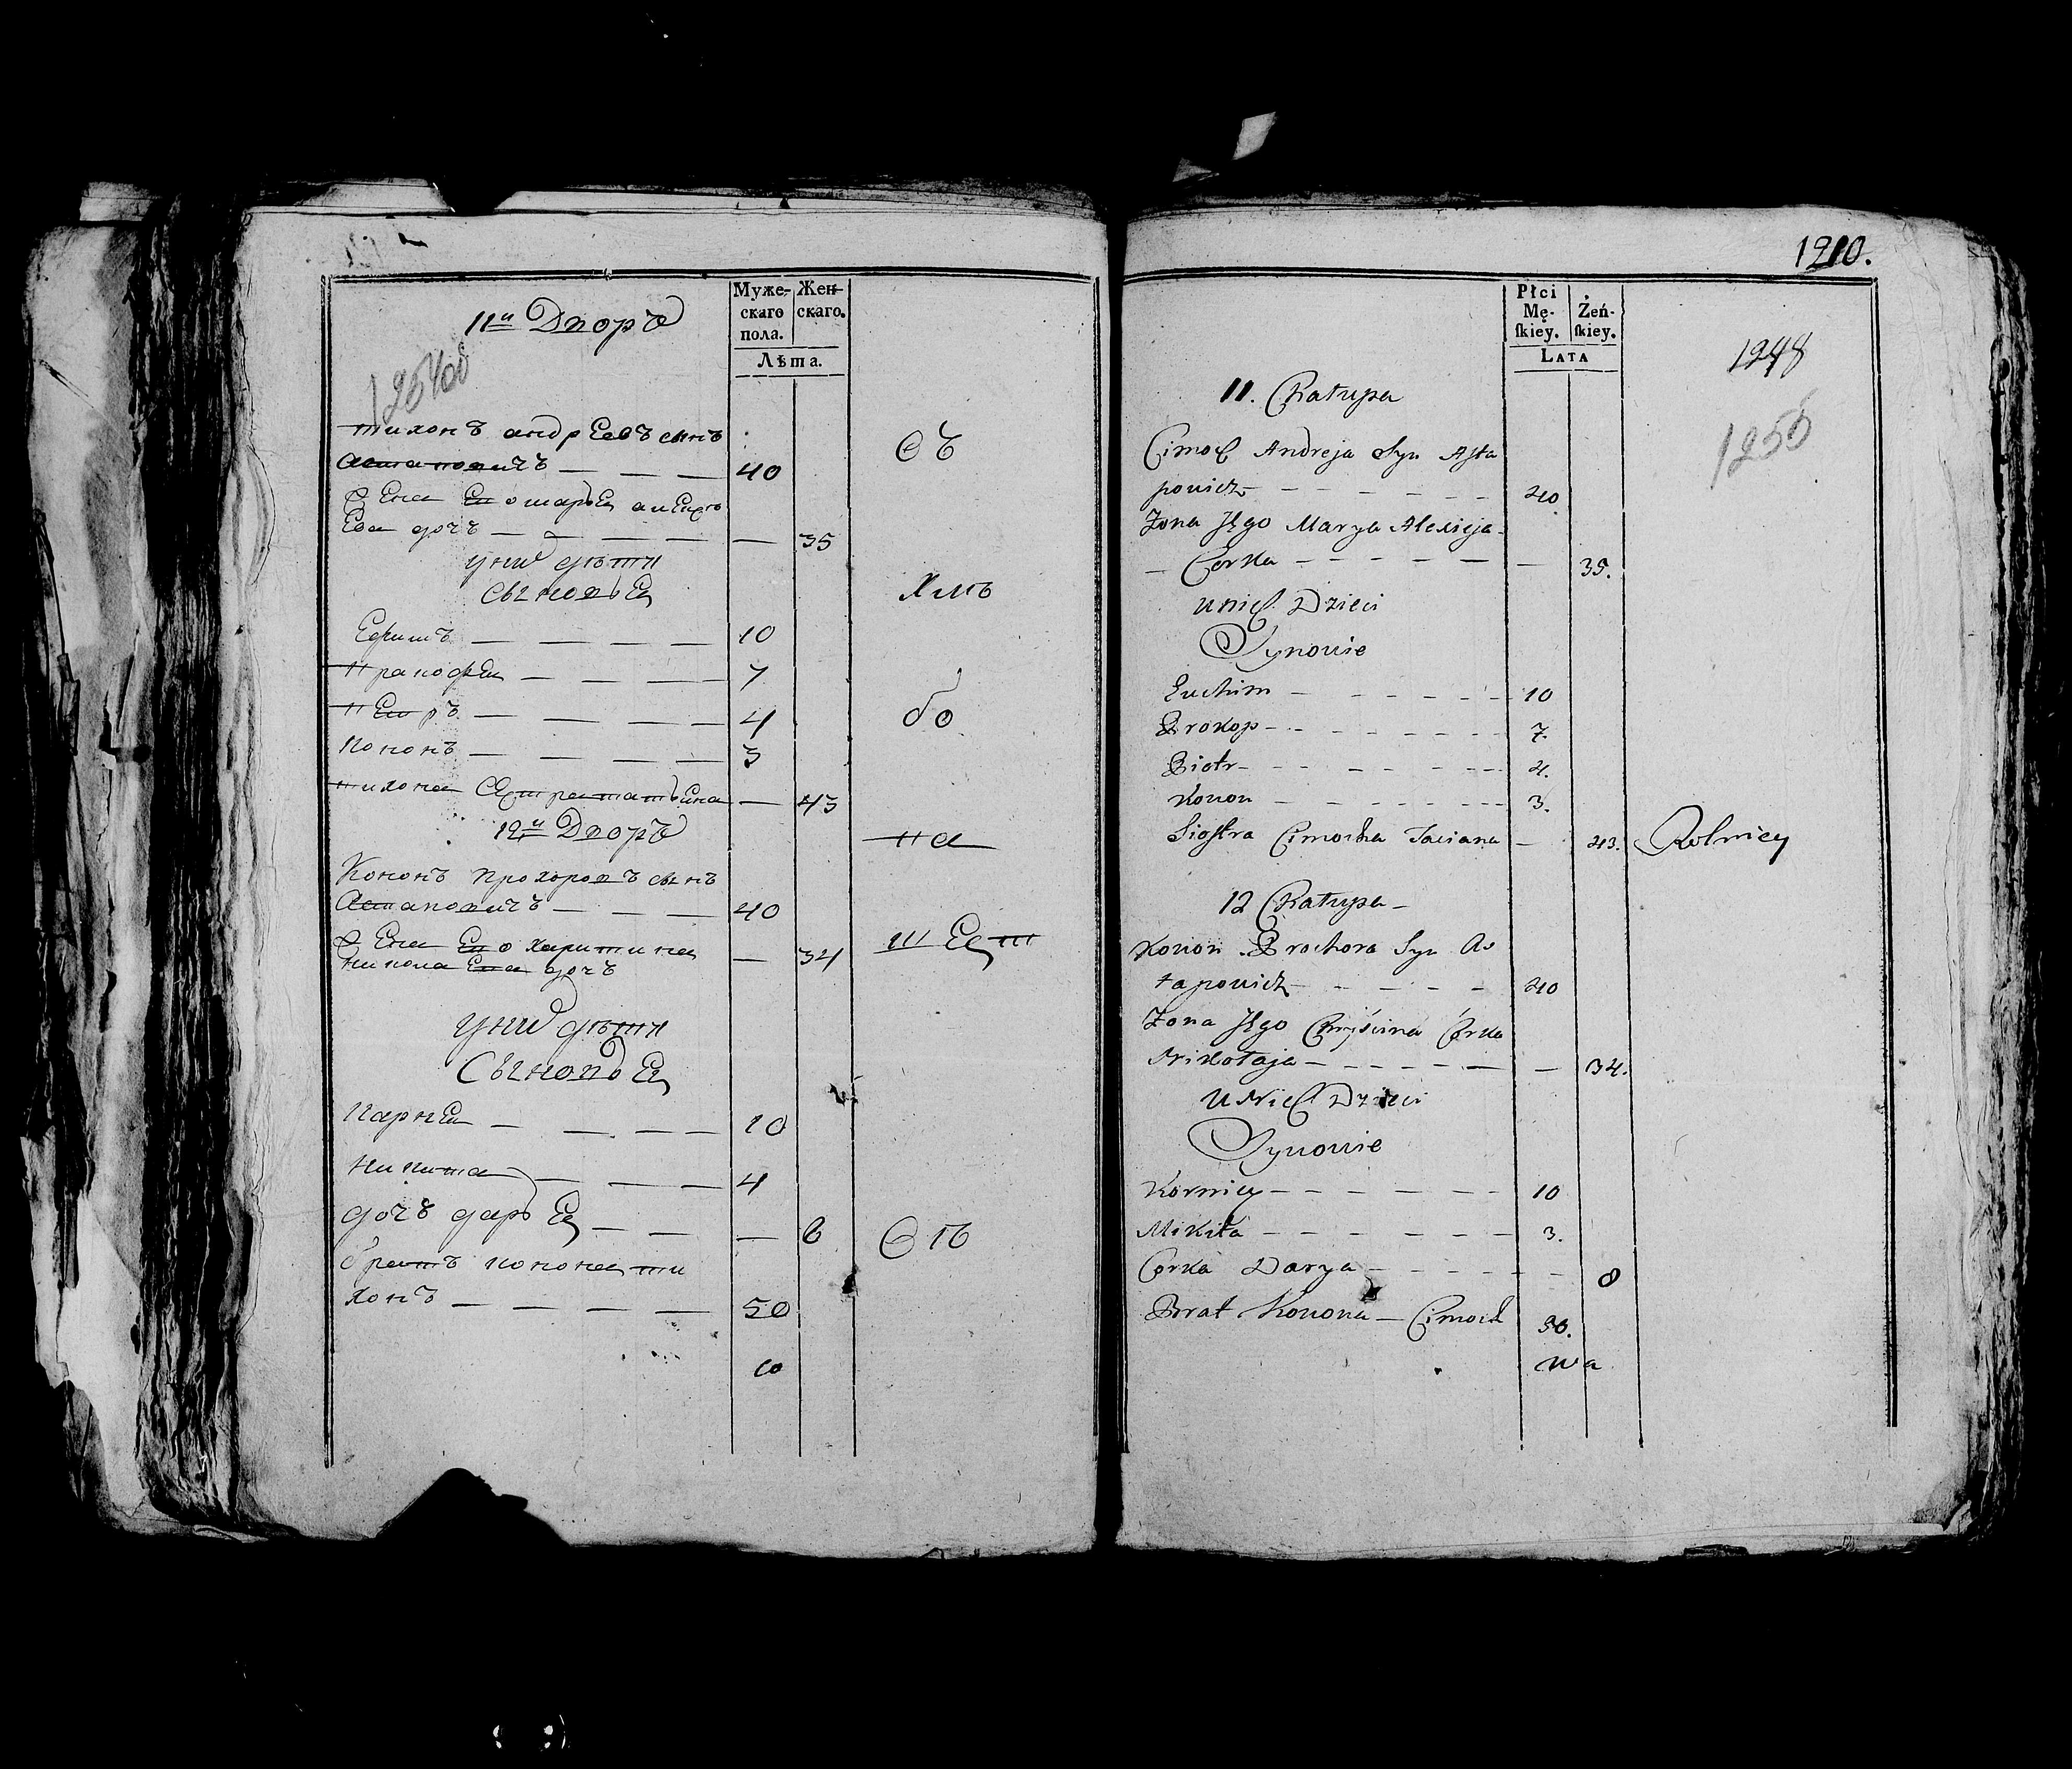 11й Дворъ
Муже-
скаго
пола.
Жен-
скаго.
Лѣта.
тихонъ андреевъ сынъ
Астаповичъ — — — 40
Жена Его марья алексѣ
Ева дочь — — — — — 35
у них дѣти
Сыновья
Ефимъ — — — — 10
прокофей — — — — 7
петръ — — — — 4
кононъ — — — — 3
тихона сестра татьяна — 43
12й Дворъ
Кононъ прохоровъ сынъ
Астаповичъ — — — 40
Жена Его харитина — 34
никола Ева дочь
у них дѣти
Сыновья
Карней — — — — 10
никита — — — 4
дочь дарья — — — 8
братъ конона ти
хонъ — — — — 50
10
Съ
хмъ
бо
на
шест
Въ
1210.
Płci
Mę-
ſkiey.
Żeń-
ſkiey.
LATA
1248
1250
11. Chałupa
Cimoch Andreja Syn Asta
powicz — — — — — — 40
Żona Jego Marya Alexieja
— Corka — — — — — — 35.
u nich Dzieci
Synowie
Euchim — — — — — — 10
Prokop — — — — — — 7.
Piotr — — — — — — 4.
Konon — — — — — — 3.
Siostra Cimocha Taciana — 43. Rolnicy
12 Chałupa —
Konon Prochora Syn As
tapowicz — — — — — 40
Żona Jego Chryścina Córka
Mikołaja — — — — — — 34.
u Nich Dzieci
Synowie
Korniey — — — — — — 10
Mikita — — — — — — 3.
Corka Darya — — — — — — 8
Brat Konona — Cimoch 50.
wa